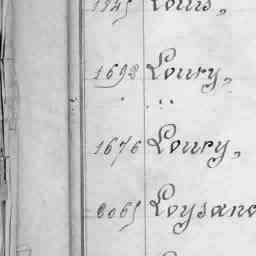 1945 Louis,
1692 Loury,
" "
1676 Loury,
8065 Loysano